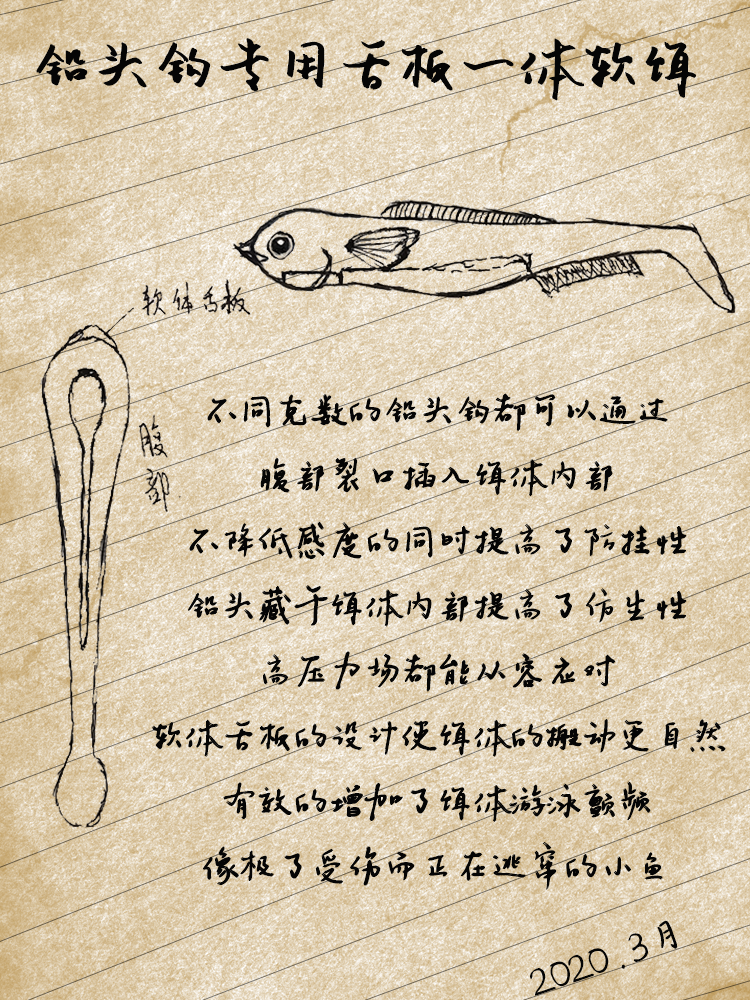 铅头钩专用舌板一体软饵
软体舌板
腹部
不同克数的铅头钩都可以通过
腹部裂口插入饵体内部
不降低感度的同时提高了防挂性
铅头藏于饵体内部提高了仿生性
高压力场都能从容应对
软体舌板的设计使饵体的搬动更自然
有效的增加了饵体游泳颤频
像极了受伤而正在逃窜的小鱼
2020.3月